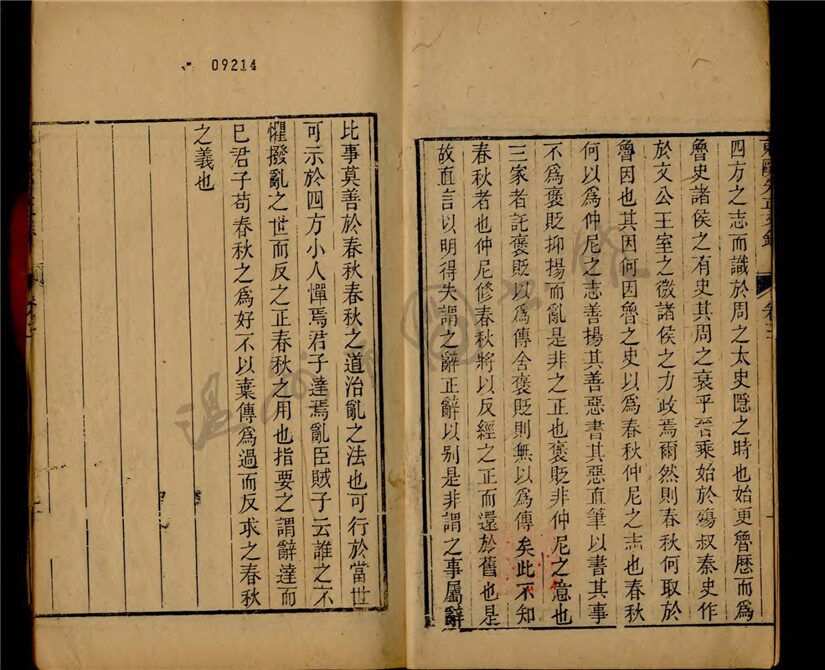 09214
四方之志而識於周之太史隱之時也始更魯曆而為
魯史諸侯之有史其周之衰乎晉乘始於殤叔秦史作
於文公王室之微諸侯之力政焉爾然則春秋何取於
魯因也其因何因魯之史以為春秋仲尼之志也春秋
何以為仲尼之志善揚其善惡書其惡直筆以書其事
不為褒貶抑揚而亂是非之正也褒貶非仲尼之意也
三家者託褒貶以為傳舍褒貶則無以為傳矣此不知
春秋者也仲尼修春秋將以反經之正而還於舊也是
故直言以明得失謂之辭正辭以別是非謂之事屬辭
比事莫善於春秋春秋之道治亂之法也可行於當世
可示於四方小人憚焉君子達焉亂臣賊子云誰之不
懼撥亂之世而反之正春秋之用也指要之謂辭達而
巳君子苟春秋之為好不以棄傳為過而反求之春秋
之義也
卷三